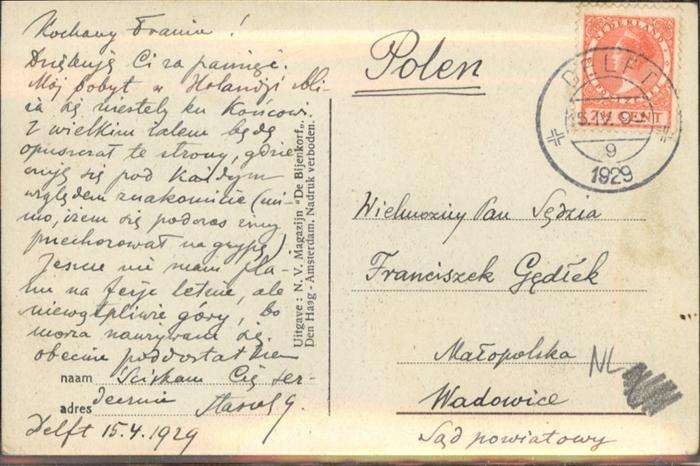 Kochany Franiu!
Dziękuję Ci za pamięć.
Mój pobyt w Holandji zbli-
ża się niestety ku końcowi
Z wielkim żalem będę
opuszczał te strony, gdzie
czuję się pod każdym
względem znakomicie (mi-
mo, iżem się podczas zimy
przechorował na grypę)
Jeszcze nie mam pla-
nu na ferje letnie, ale
niewątpliwie góry, bo
morza
obecnie pod dostatkiem
naam Ściskam Cię ser-
adres decznie
Delft 15.4.1929
Uitgave: N. V. Magazijn "De Bijenkorf",
Den Haag - Amsterdam. Nadruk verboden.
Polen
NEDERLAND
CENT
DELFT
15.IV. 9-
9
1929
Wielmożny Pan Sędzia
Franciszek Gędłek
Małopolska
NL
Wadowice
Sąd powiatowy